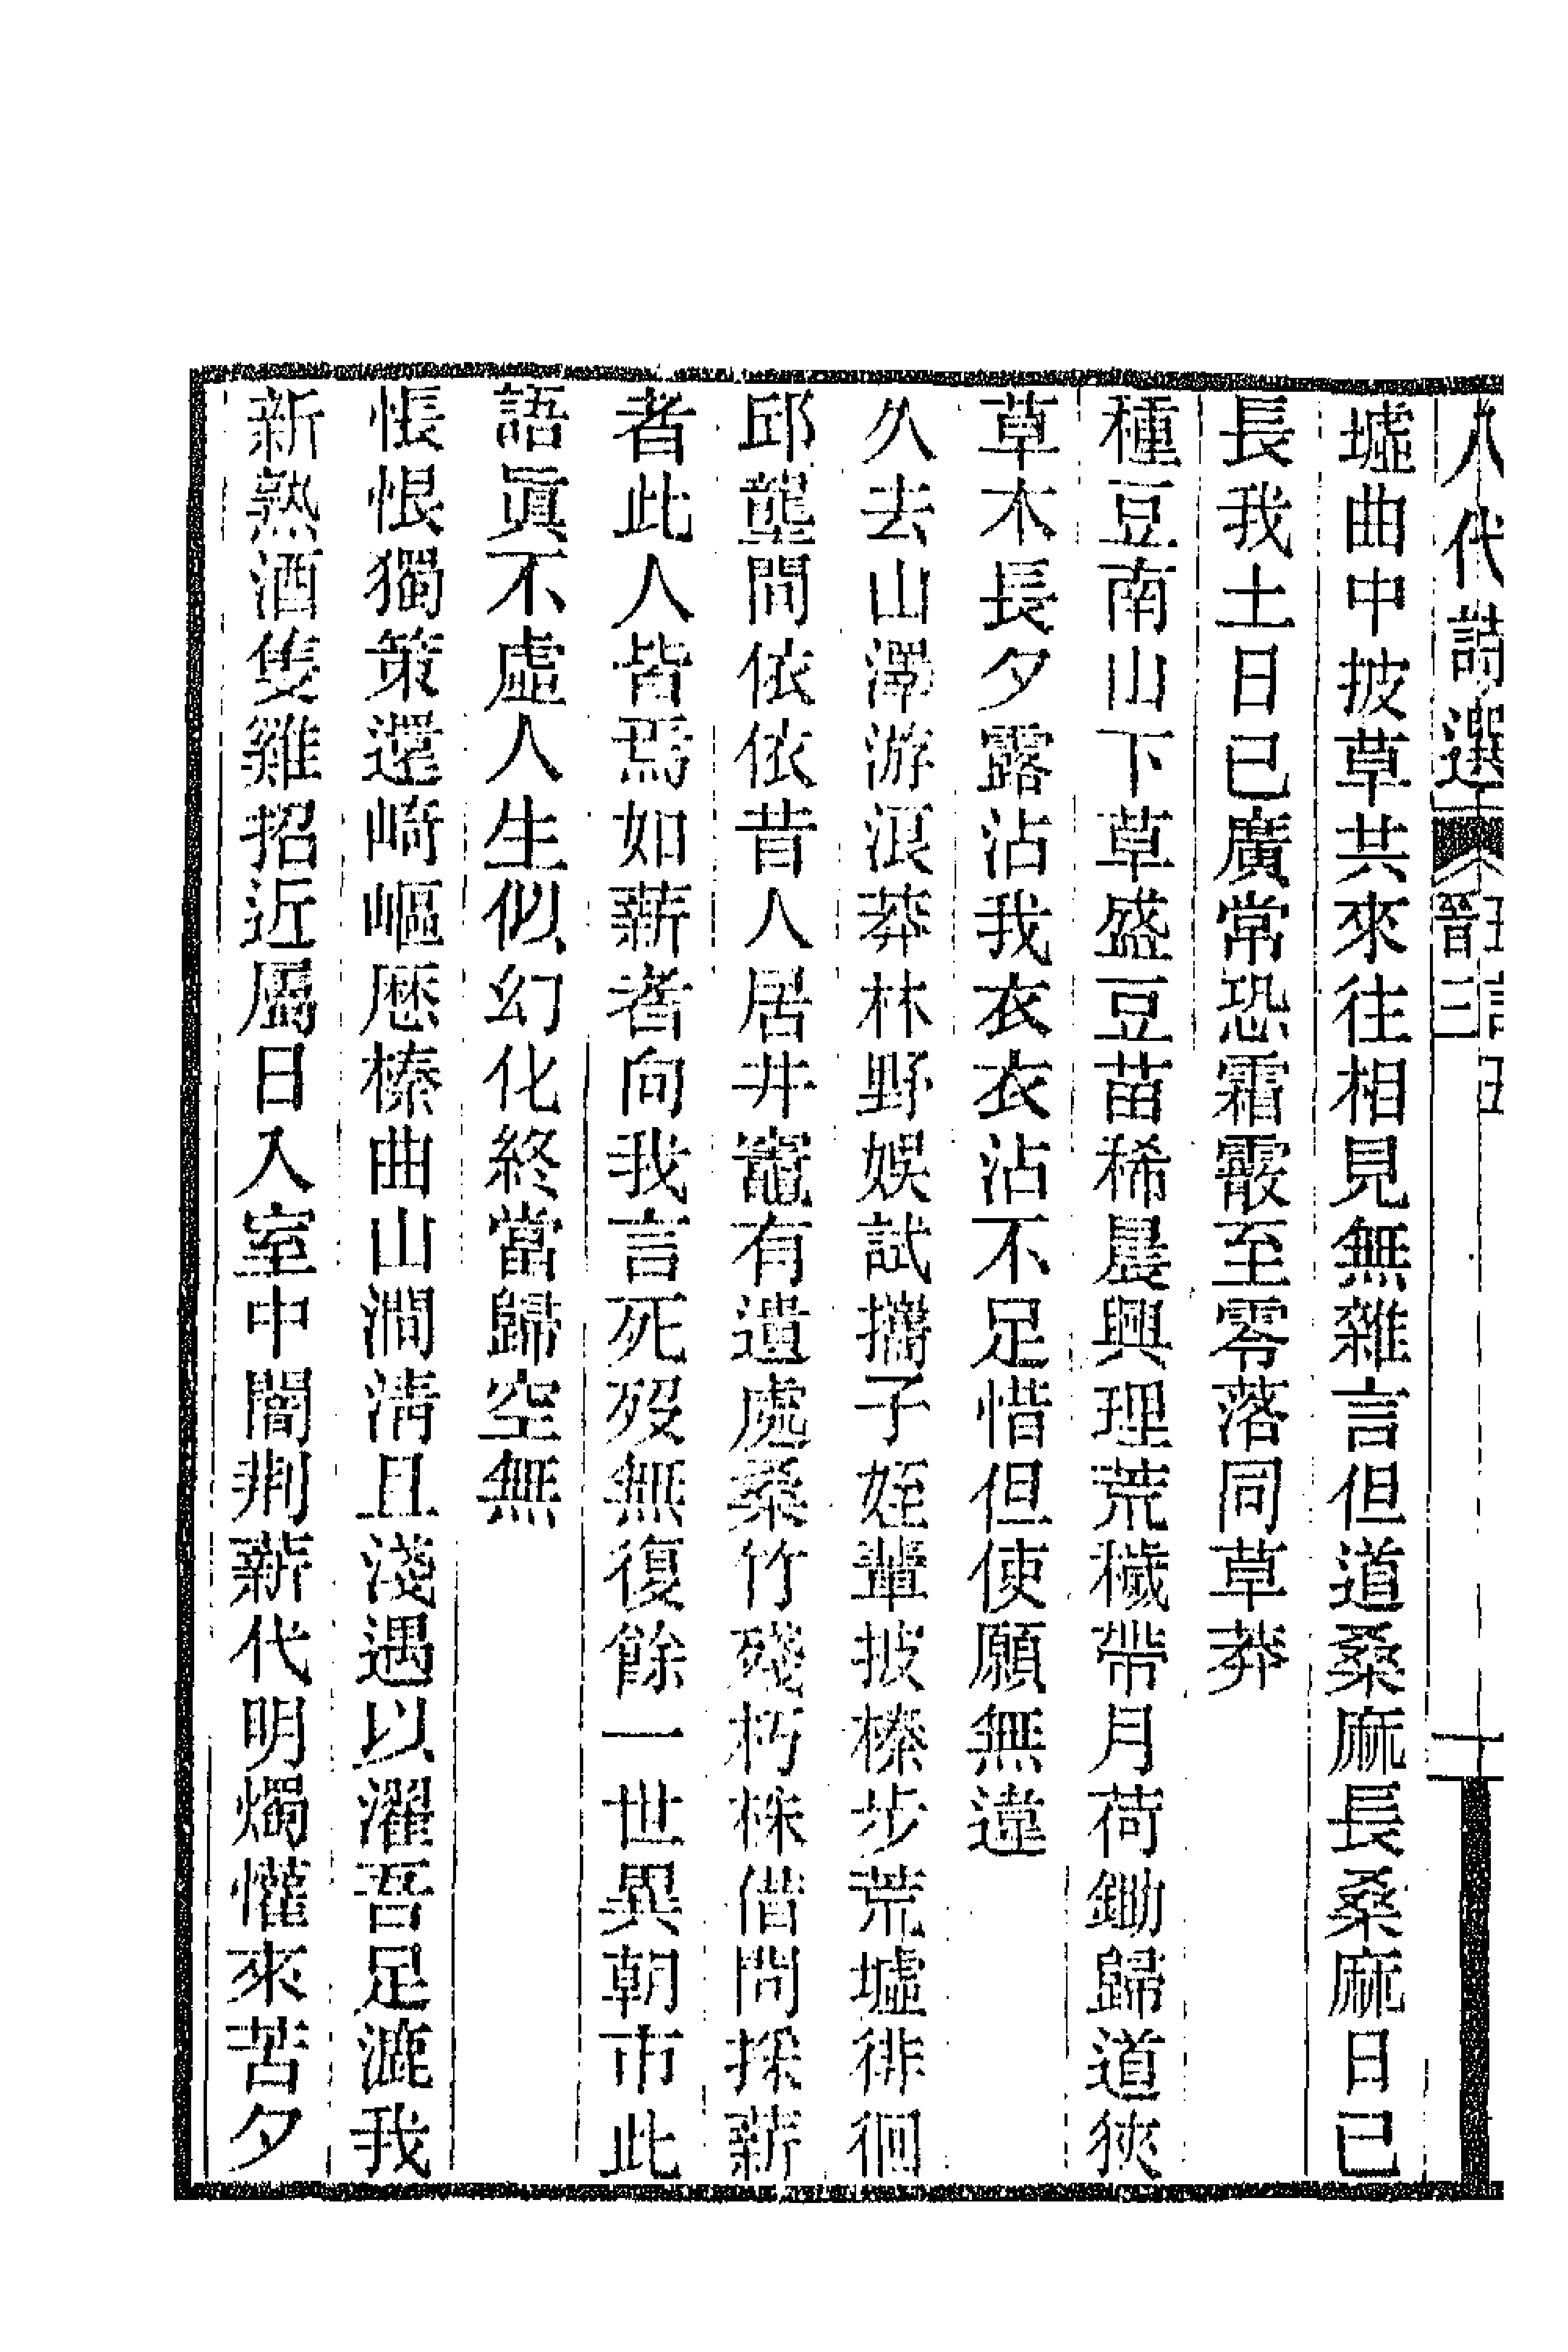 八代詩選
晉三
墟曲中披草共來往相見無雜言但道桑麻長桑麻日已
長我土日已廣常恐霜霰至零落同草莽
種豆南山下草盛豆苗稀晨興理荒穢帶月荷鋤歸道狹
草木長夕露沾我衣衣沾不足惜但使願無違
久去山澤游浪莽林野娛試攜子姪輩披榛步荒墟徘徊
邱壟間依依昔人居井竈有遺處桑竹殘朽株借問採薪
者此人皆焉如薪者向我言死歿無復餘一世異朝市此
語眞不虛人生似幻化終當歸空無
悵恨獨策還崎嶇歷榛曲山澗淸且淺遇以濯吾足漉我
新熟酒隻雞招近屬日入室中闇荆薪代明燭懽來苦夕